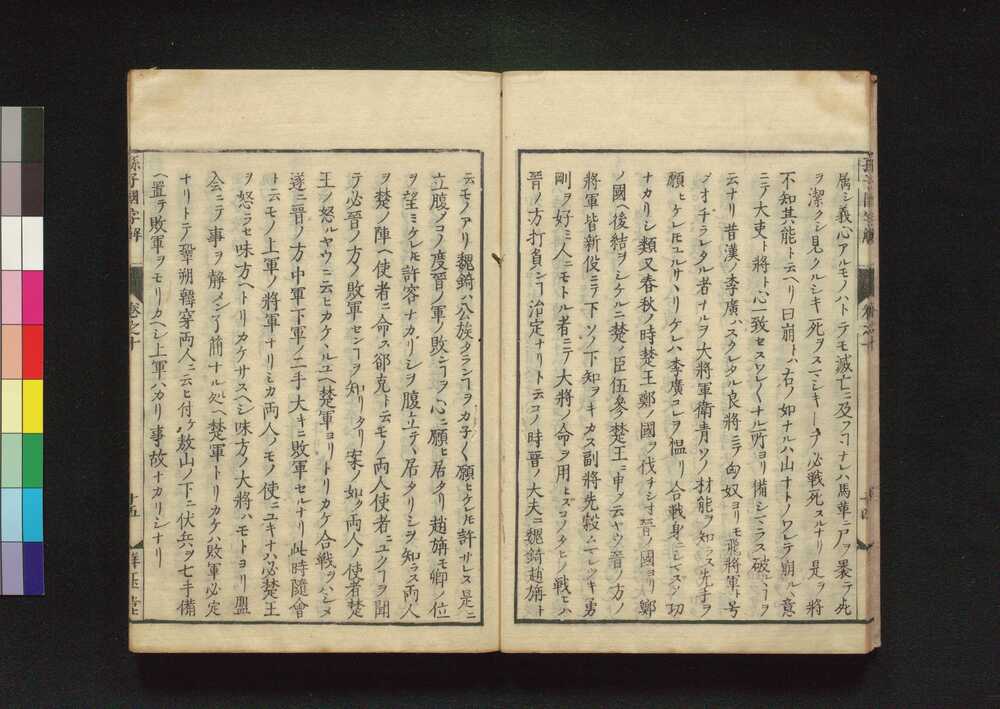 属シ義心アルモノハトテモ滅亡ニ及フヿナレハ馬革ニ尸ヲ裹テ死
ヲ潔クシ見クルシキ死ヲスマシキ必戦死スルナリ是ヲ将
不知其能ト云ヘリ曰崩トハ右ノ如ナルハ山ナトノワレテ崩ルヽ意
ニテ大吏ト将ト心一致セスワレ〱ナル所ヨリ備シマラス破ルヽヿヲ
云ナリ昔漢ノ李廣ハスクレタル良将ニテ匈奴ヨリモ飛将軍ト号
メオチラレタル者ナルヲ大将軍衛青ソノ材能ヲ知ラス先手ヲ
願ヒケレ𪜈ユルサヽリケレハ李廣コレヲ愠リ合戦身ニシマスシテ功
ナカリシ類又春秋ノ時楚王鄭ノ國ヲ伐チシオ晋ノ國ヨリ鄭
ノ國ヘ後結ヲシケルニ楚ノ臣伍參楚王ニ申ヲ云ヤウ晋ノ方ノ
將軍皆新役ニテ下ソノ下知ヲキカス副將先縠ムマレツキ勇
剛ヲ好ミ人ニモトル者ニテ大將ノ命ヲ用ヒズコノタヒノ戦モハ
晋ノ方打負ンヿ治定ナリト云コノ時晋ノ大夫ニ魏錡趙旃ト
孫子國字解 巻之十 十五
云モノアリ魏錡ハ公族タランヿヲカ子〱願ヒケレ𪜈許サレス是ニ
立腹メコノ度晋ノ軍ノ敗ンヿヲ心ニ願ヒ居タリ趙旃モ卿ノ位
ヲ望ミケレ𪜈許容ナカリシヲ腹立テヽ居タリシヲ知ラス両人
ヲ楚ノ陣ヘ使者ニ命ス郤克ト云モノ両人使者ニユクヲ聞
テ必晋ノ方ノ敗軍センヿヲ知リタリ案ノ如ク両人ノ使者楚
王ノ怒ルヤウニ云ヒカケヽルユヘ楚軍ヨリトリカケ合戦ヲハシメ
遂ニ晋ノ方中軍下軍ノ二手大キニ敗軍セルナリ此時隨會
ト云モノ上軍ノ將軍ナリシカ両人ノモノ使ニユキナハ必楚王
ヲ怒ラセ味方ヘトリカケサスヘシ味方ノ大將ハモトヨリ盟
会ニテ事ヲ静メン了簡ナル処ヘ楚軍トリカケハ敗軍必定
ナリトテ鞏朔韓穿両人ニ云ヒ付ケ敖山ノ下ニ伏兵ヲ七手備
ヘ置テ敗軍ヲモリカヘシ上軍ハカリ事故ナカリシナリ